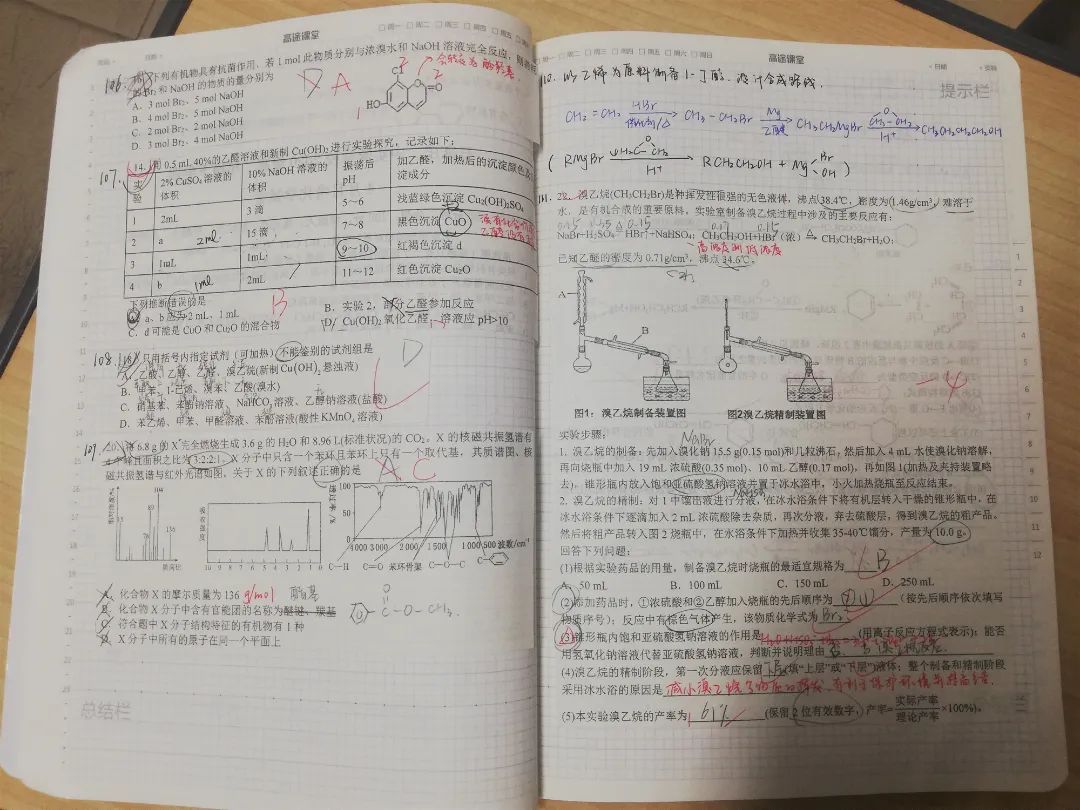 高途课堂
□周一 □周二 □周三 □周四 □周五
106.
下列有机物具有抗菌作用,若1 mol此物质分别与浓溴水和NaOH溶液完全反应,则
Br₂和NaOH的物质的量分别为
D A
A. 3 mol Br₂、5 mol NaOH
B. 4 mol Br₂、5 mol NaOH
C. 2 mol Br₂、2 mol NaOH
D. 3 mol Br₂、4 mol NaOH
HO
107.
14.用0.5 mL 40%的乙醛溶液和新制Cu(OH)₂进行实验探究,记录如下:
实验 2% CuSO₄溶液的体积 10% NaOH溶液的体积 振荡后pH 加乙醛,加热后的沉淀颜色及沉淀成分
1 2mL 3滴 5~6 浅蓝绿色沉淀Cu₂(OH)₂SO₄
2 a 2mL 15滴 7~8 黑色沉淀CuO
3 1mL 1mL 9~10 红褐色沉淀d
4 b 1mL 2mL 11~12 红色沉淀Cu₂O
下列推断错误的是 B
a、b应为2 mL、1 mL
B. 实验2,部分乙醛参加反应
C. d可能是CuO和Cu₂O的混合物
D. Cu(OH)₂氧化乙醛,溶液应pH>10
108.
只用括号内指定试剂(可加热),不能鉴别的试剂组是 D
A. 乙酸、乙醇、乙醛、溴乙烷(新制Cu(OH)₂悬浊液)
B. 甲苯、1-己烯、溴苯、乙酸(溴水)
C. 硝基苯、苯酚钠溶液、NaHCO₃溶液、乙醇钠溶液(盐酸)
D. 苯乙烯、甲苯、甲醛溶液、苯酚溶液(酸性KMnO₄溶液)
109
将6.8 g的X完全燃烧生成3.6 g的H₂O和8.96 L(标准状况)的CO₂。X的核磁共振氢谱有
4个峰且面积之比为3:2:2:1。X分子中只含一个苯环且苯环上只有一个取代基,其质谱图、核
磁共振氢谱与红外光谱如图。关于X的下列叙述正确的是
A C
透过率/%
100
50
0
4000 3000 2000 1500 1000 500 波数/cm⁻¹
吸收强度
10 9 8 7 6 5 4 3 2 1 0
质荷比
C—H C=O 苯环骨架 C—O—C
A. 化合物X的摩尔质量为136 g/mol
B. 化合物X分子中含有官能团的名称为醚键、羰基
C. 符合题中X分子结构特征的有机物有1种
D. X分子中所有的原子在同一个平面上
总结栏
高途课堂
□周二 □周三 □周四 □周五 □周六 □周日
提示栏
110. 以乙烯为原料制备1-丁醇,设计合成路线
CH₂=CH₂ HBr 催化剂/△ CH₃-CH₂Br Mg 乙醚 CH₃CH₂MgBr H⁺ CH₃CH₂CH₂CH₂OH
( RMgBr H⁺ RCH₂CH₂OH + Mg Br OH )
111.
溴乙烷(CH₃CH₂Br)是种挥发性很强的无色液体,沸点38.4℃,密度为1.46g/cm³,难溶于
水,是有机合成的重要原料。实验室制备溴乙烷过程中涉及的主要反应有:
NaBr+H₂SO₄=HBr↑+NaHSO₄; CH₃CH₂OH+HBr(浓) △ CH₃CH₂Br+H₂O;
已知乙醚的密度为0.71g/cm³,沸点34.6℃。
A
B
图1:溴乙烷制备装置图
图2溴乙烷精制装置图
-4
实验步骤:
NaBr
1. 溴乙烷的制备:先加入溴化钠15.5 g(0.15 mol)和几粒沸石,然后加入4 mL水使溴化钠溶解,
再向烧瓶中加入19 mL浓硫酸(0.35 mol)、10 mL乙醇(0.17 mol),再如图1(加热及夹持装置略
去)。锥形瓶内放入饱和亚硫酸氢钠溶液并置于冰水浴中,小火加热烧瓶至反应结束。
2. 溴乙烷的精制:对1中馏出液进行分液,在冰水浴条件下将有机层转入干燥的锥形瓶中,在
冰水浴条件下逐滴加入2 mL浓硫酸除去杂质,再次分液,弃去硫酸层,得到溴乙烷的粗产品。
然后将粗产品转入图2烧瓶中,在水浴条件下加热并收集35-40℃馏分,产量为10.0 g。
回答下列问题:
(1)根据实验药品的用量,制备溴乙烷时烧瓶的最适宜规格为 B
A. 50 mL B. 100 mL C. 150 mL D. 250 mL
(2)添加药品时,①浓硫酸和②乙醇加入烧瓶的先后顺序为 ②① (按先后顺序依次填写
物质序号);反应中有棕色气体产生,该物质化学式为 Br₂
(3)锥形瓶内饱和亚硫酸氢钠溶液的作用是 (用离子反应方程式表示);能否
用氢氧化钠溶液代替亚硫酸氢钠溶液,判断并说明理由
(4)溴乙烷的精制阶段,第一次分液应保留 下层 (填“上层”或“下层”)液体;整个制备和精制阶段
采用冰水浴的原因是
(5)本实验溴乙烷的产率为 61% (保留2位有效数字,产率=实际产率/理论产率×100%)。